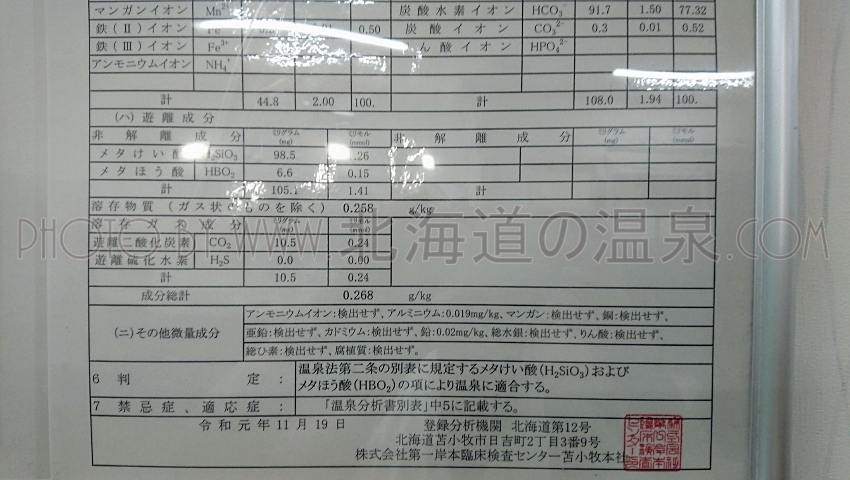 マンガンイオン Mn²⁺ 炭酸水素イオン HCO₃⁻ 91.7 1.50 77.32
鉄(Ⅱ)イオン 0.50 炭酸イオン CO₃²⁻ 0.3 0.01 0.52
鉄(Ⅲ)イオン Fe³⁺ ん酸イオン HPO₄²⁻
アンモニウムイオン NH₄⁺
計 44.8 2.00 100. 計 108.0 1.94 100.
(ハ)遊離成分
非解離成分 ミリグラム(mg) ミリモル(mmol) 非解離成分 ミリグラム(mg) ミリモル(mmol)
メタけい酸 H₂SiO₃ 98.5 1.26
メタほう酸 HBO₂ 6.6 0.15
計 105.1 1.41 計
溶存物質(ガス状のものを除く) 0.258 g/kg
溶存ガス成分 ミリグラム(mg) ミリモル(mmol)
遊離二酸化炭素 CO₂ 10.5 0.24
遊離硫化水素 H₂S 0.0 0.00
計 10.5 0.24
PHOTO BY WWW.北海道の温泉.COM
成分総計 0.268 g/kg
(ニ)その他微量成分
アンモニウムイオン:検出せず、アルミニウム:0.019mg/kg、マンガン:検出せず、銅:検出せず、
亜鉛:検出せず、カドミウム:検出せず、鉛:0.02mg/kg、総水銀:検出せず、りん酸:検出せず、
総ひ素:検出せず、腐植質:検出せず。
6 判定: 温泉法第二条の別表に規定するメタけい酸(H₂SiO₃)および
メタほう酸(HBO₂)の項により温泉に適合する。
7 禁忌症、適応症: 「温泉分析書別表」中5に記載する。
令和元年11月19日 登録分析機関 北海道第12号
北海道苫小牧市日吉町2丁目3番9号
株式会社第一岸本臨床検査センター苫小牧本社